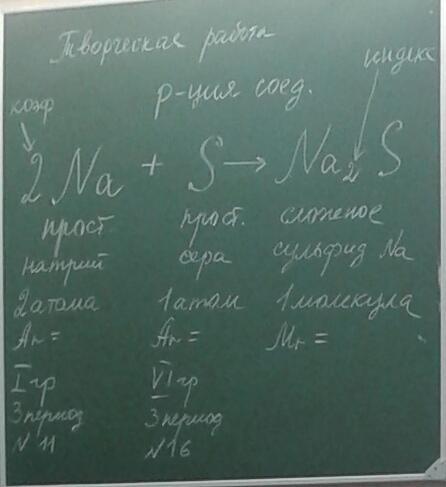 Творческая работа
индекс
р-ция соед.
коэф
2Na + S → Na₂S
прост прост. сложеное
натрий сера сульфид Na
2 атома 1 атом 1 молекула
Ar = Ar = Mr =
I гр VI гр
3 период 3 период
N 11 N 16